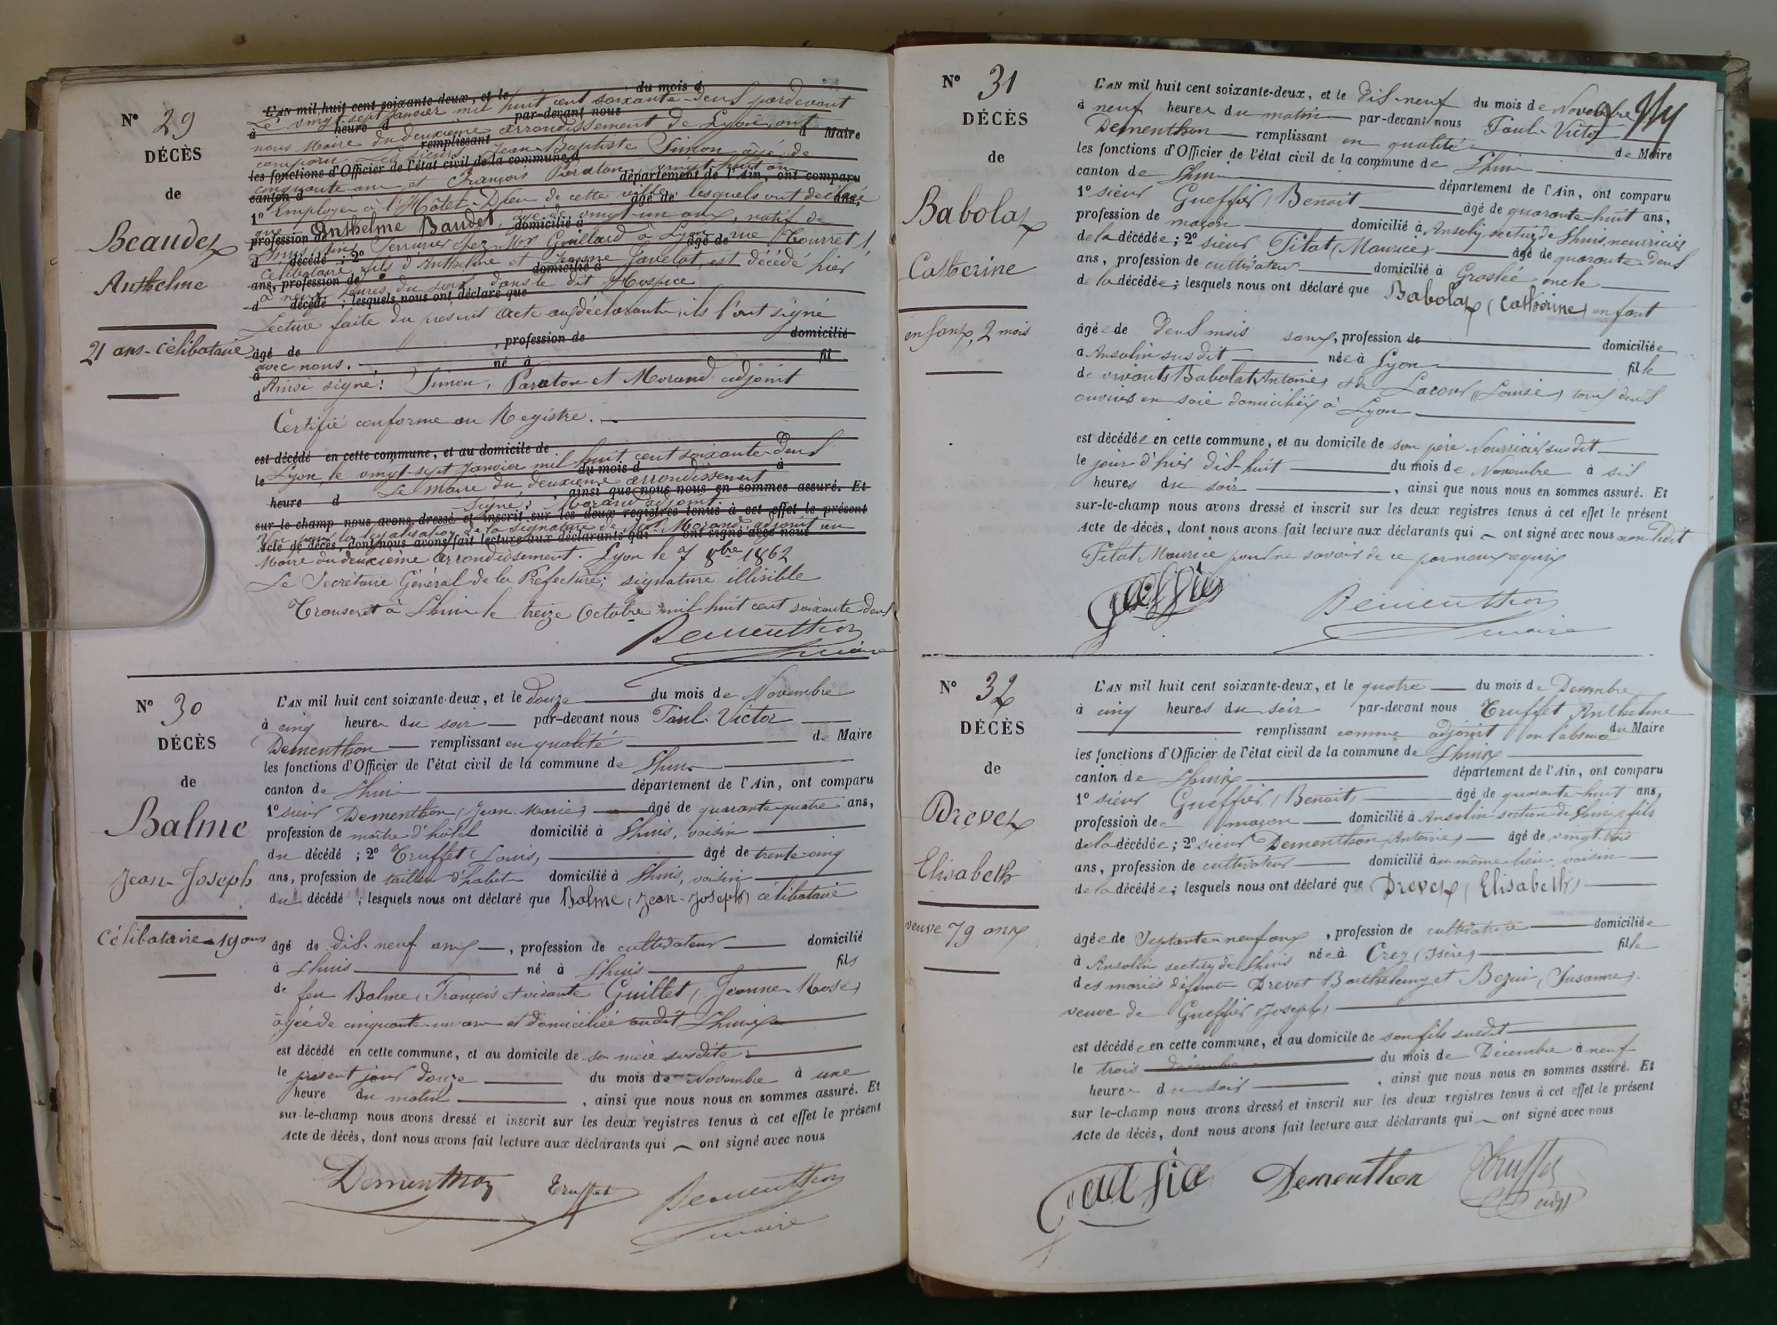 N° 29
DÉCÈS
de
Beaudet
Anthelme
21 ans - célibataire
L'AN mil huit cent soixante-deux, et le du mois d
Le vingt sept Janvier mil huit cent soixante-deux pardevant
à heure d par-devant nous
nous Maire du deuxième arrondissement de Lyon, ont
remplissant d Maire
comparu Jean Baptiste Simon, âgé de
les fonctions d'Officier de l'état civil de la commune d
cinquante ans et François Paraton, vingt huit ans
canton d département de l'Ain, ont comparu
Employés à l'Hôtel-Dieu de cette ville lesquels ont déclaré
1° âgé de ans,
que Anthelme Baudet, âgé de vingt-un ans, natif de
profession de domicilié à
Serrurier chez Mr Gaillard à Lyon rue Tourret 1,
d décédé ; 2° âgé de
célibataire, fils d'Anthelme et Jeanne Javelot, est décédé hier
ans, profession de domicilié à
à heures du soir dans le dit Hospice
d décédé ; lesquels nous ont déclaré que
Lecture faite du présent acte aux déclarants, ils l'ont signé
âgé de , profession de domicilié
avec nous.
à né à fil
Ainsi signé : Simon, Paraton et Morand adjoint
d
Certifié conforme au Registre.
est décédé en cette commune, et au domicile de
Lyon le vingt-sept Janvier mil huit cent soixante-deux
le du mois d à
Le maire du deuxième arrondissement
heure d , ainsi que nous nous en sommes assuré. Et
Signé : Morand adjoint
sur-le-champ nous avons dressé et inscrit sur les deux registres tenus à cet effet le présent
Vu pour la légalisation de la signature de Mr Morand adjoint au
acte de décès, dont nous avons fait lecture aux déclarants qui ont signé avec nous
Maire du deuxième arrondissement. Lyon le 7 8bre 1862
Le Secrétaire Général de la Préfecture ; signature illisible
Transcrit à Lhuis le treize Octobre mil huit cent soixante deux
Dementhon
maire
N° 30
DÉCÈS
de
Balme
Jean-Joseph
Célibataire - 19 ans
L'AN mil huit cent soixante-deux, et le douze du mois de Novembre
à cinq heures du soir par-devant nous Paul-Victor
Dementhon remplissant en qualité de Maire
les fonctions d'Officier de l'état civil de la commune de Lhuis
canton de Lhuis département de l'Ain, ont comparu
1° sieur Dementhon (Jean Marie) âgé de quarante quatre ans,
profession de maître d'hôtel domicilié à Lhuis, voisin
du décédé ; 2° Truffet (Louis) âgé de trente-cinq
ans, profession de tailleur d'habit domicilié à Lhuis, voisin
du décédé ; lesquels nous ont déclaré que Balme (Jean-Joseph) célibataire
âgé de dix-neuf ans , profession de cultivateur domicilié
à Lhuis né à Lhuis fils
de feu Balme, François et vivante Guillet (Jeanne-Rose)
âgée de cinquante-un ans et domiciliée audit Lhuis
est décédé en cette commune, et au domicile de sa mère susdite
le présent jour douze du mois de Novembre à une
heure du matin , ainsi que nous nous en sommes assuré. Et
sur-le-champ nous avons dressé et inscrit sur les deux registres tenus à cet effet le présent
acte de décès, dont nous avons fait lecture aux déclarants qui ont signé avec nous
Dementhon Truffet Dementhon
maire
N° 31
DÉCÈS
de
Babolat
Catherine
enfant, 2 mois
L'AN mil huit cent soixante-deux, et le dix-neuf du mois de Novembre
à neuf heures du matin par-devant nous Paul-Victor
Dementhon remplissant en qualité de Maire
les fonctions d'Officier de l'état civil de la commune de Lhuis
canton de Lhuis département de l'Ain, ont comparu
1° sieur Gueffier (Benoit) âgé de quarante huit ans,
profession de maçon domicilié à Ansolin section de Lhuis, nourricier
de la décédée ; 2° sieur Pitat (Maurice) âgé de quarante-deux
ans, profession de cultivateur domicilié à Groslée oncle
de la décédée ; lesquels nous ont déclaré que Babolat (Catherine) enfant
âgée de deux mois sans, profession de domiciliée
à Ansolin susdit née à Lyon fille
de vivants Babolat Antoine et de Lacour (Louise) tous deux
ouvriers en soie domiciliés à Lyon
est décédée en cette commune, et au domicile de son père nourricier susdit
le jour d'hier dix-huit du mois de Novembre à six
heures du soir , ainsi que nous nous en sommes assuré. Et
sur-le-champ nous avons dressé et inscrit sur les deux registres tenus à cet effet le présent
acte de décès, dont nous avons fait lecture aux déclarants qui ont signé avec nous non ledit
Pitat Maurice pour ne savoir de ce par nous requis
Gueffier Dementhon
maire
N° 32
DÉCÈS
de
Drevet
Elisabeth
veuve 79 ans
L'AN mil huit cent soixante-deux, et le quatre du mois de Décembre
à cinq heures du soir par-devant nous Truffet Anthelme
remplissant comme adjoint en l'absence du Maire
les fonctions d'Officier de l'état civil de la commune de Lhuis
canton de Lhuis département de l'Ain, ont comparu
1° sieur Gueffier (Benoit) âgé de quarante-huit ans,
profession de maçon domicilié à Ansolin section de Lhuis, fils
de la décédée ; 2° sieur Dementhon Antoine âgé de vingt-trois
ans, profession de cultivateur domicilié au même lieu voisin
de la décédée ; lesquels nous ont déclaré que Drevet (Elisabeth)
âgée de Septante-neuf ans , profession de cultivatrice domiciliée
à Ansolin section de Lhuis née à Crez (Isère) fille
des mariés défunts Drevet Barthelemy et Bejuis (Susanne)
veuve de Gueffier Joseph
est décédée en cette commune, et au domicile de son fils susdit
le trois décembre du mois de Décembre à neuf
heures du soir , ainsi que nous nous en sommes assuré. Et
sur le-champ nous avons dressé et inscrit sur les deux registres tenus à cet effet le présent
acte de décès, dont nous avons fait lecture aux déclarants qui ont signé avec nous
Gueffier Dementhon Truffet
adjt